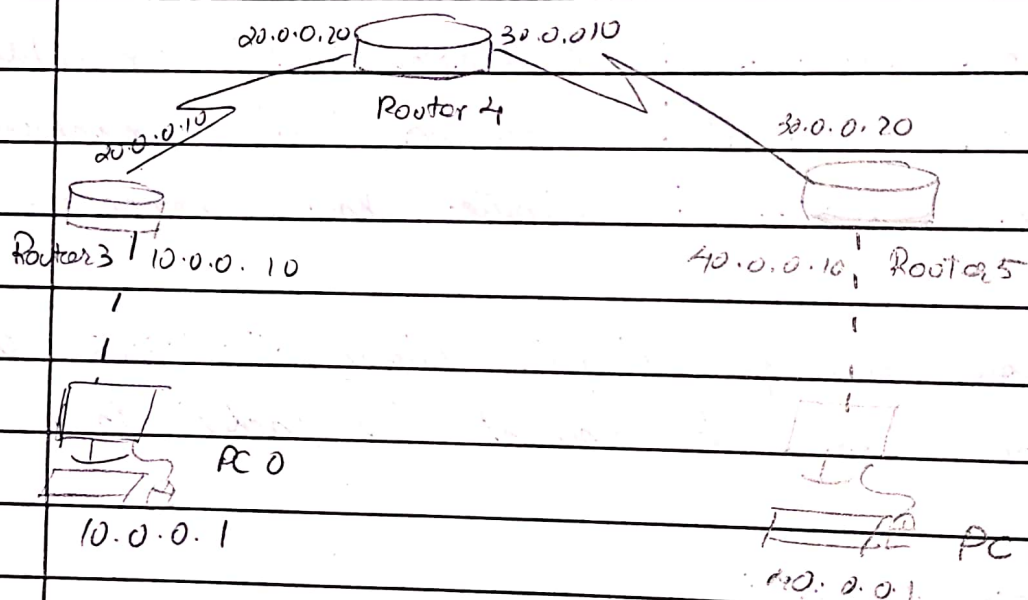 20.0.0.20
30.0.010
Router 4
20.0.0.10
30.0.0.20
Router3
10.0.0.10
40.0.0.10
Router5
PC 0
10.0.0.1
PC
40.0.0.1